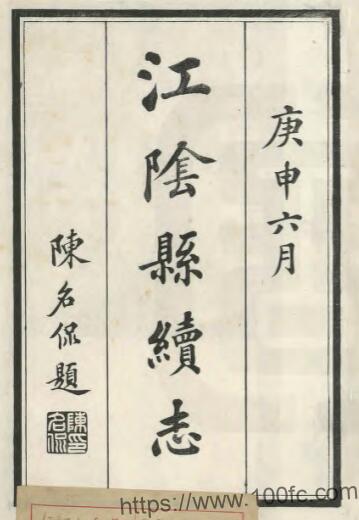 庚申六月
江陰縣續志
陳名侃題
陳印名侃
https://www.100fc.com